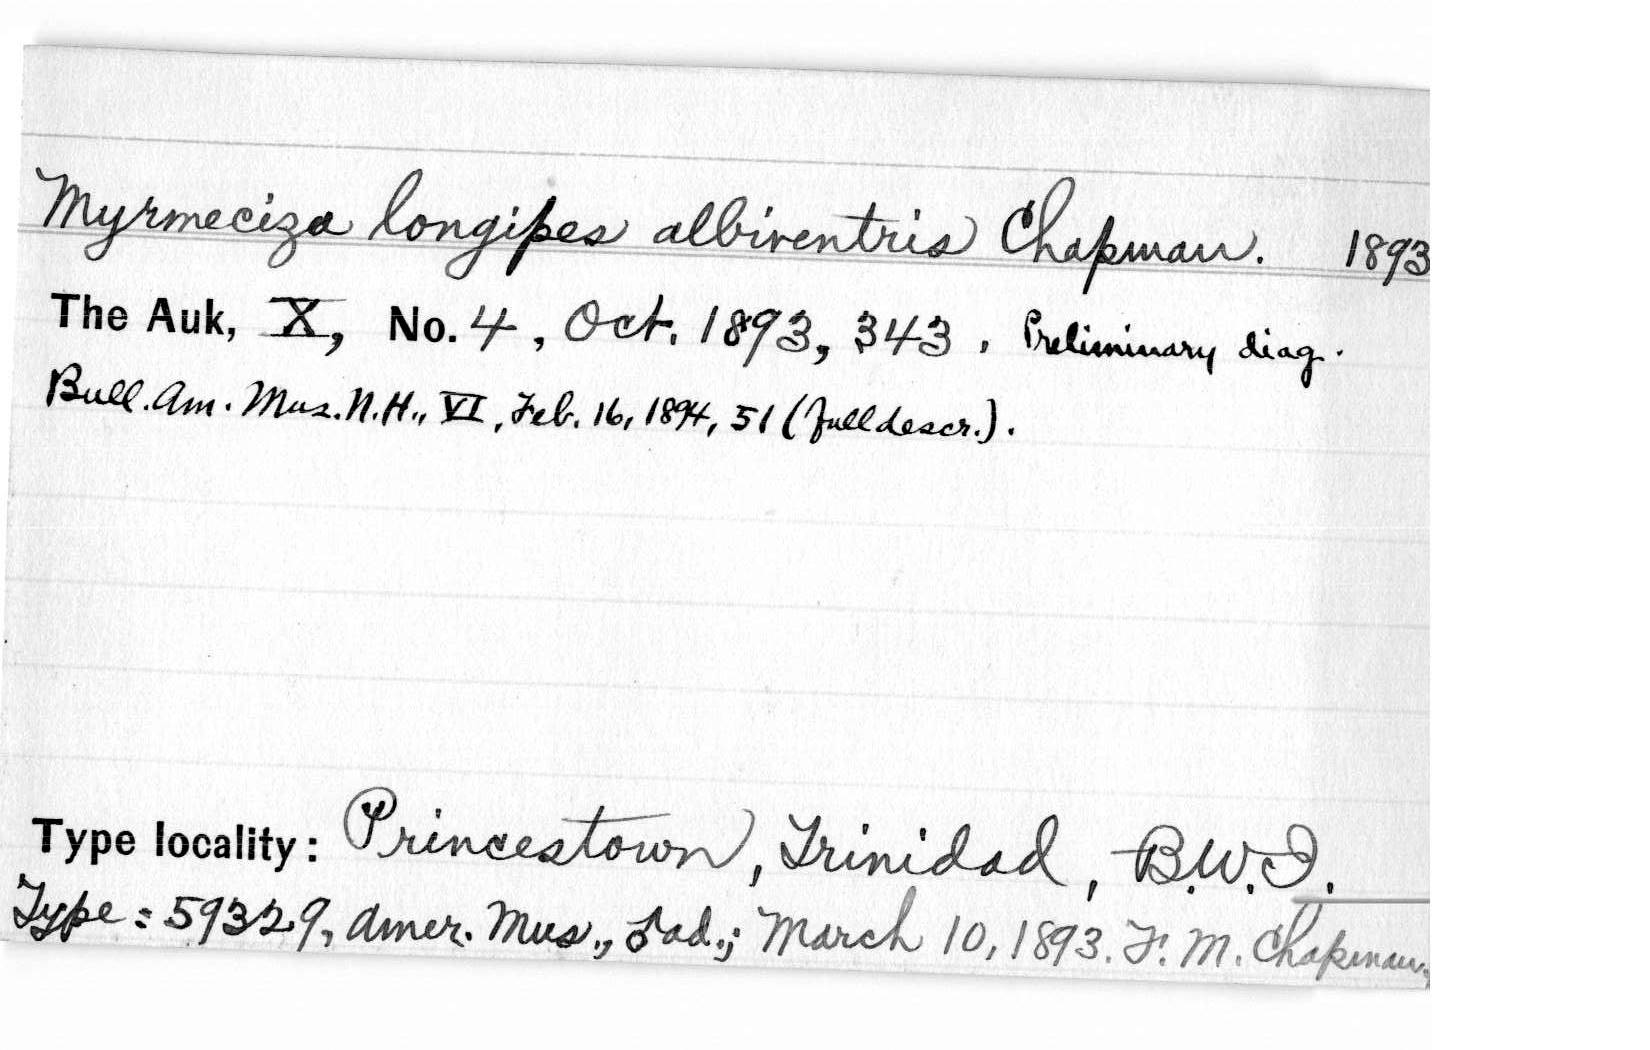 Myrmeciza longipes albiventris Chapman. 1893
The Auk, X, No. 4, Oct. 1893, 343. Preliminary diag.
Bull. Am. Mus. N.H., VI, Feb. 16, 1894, 51 (full descr.).
Type locality: Princestown, Trinidad, B.W.I.
Type = 59329, Amer. Mus., ♂ ad.; March 10, 1893. F. M. Chapman.